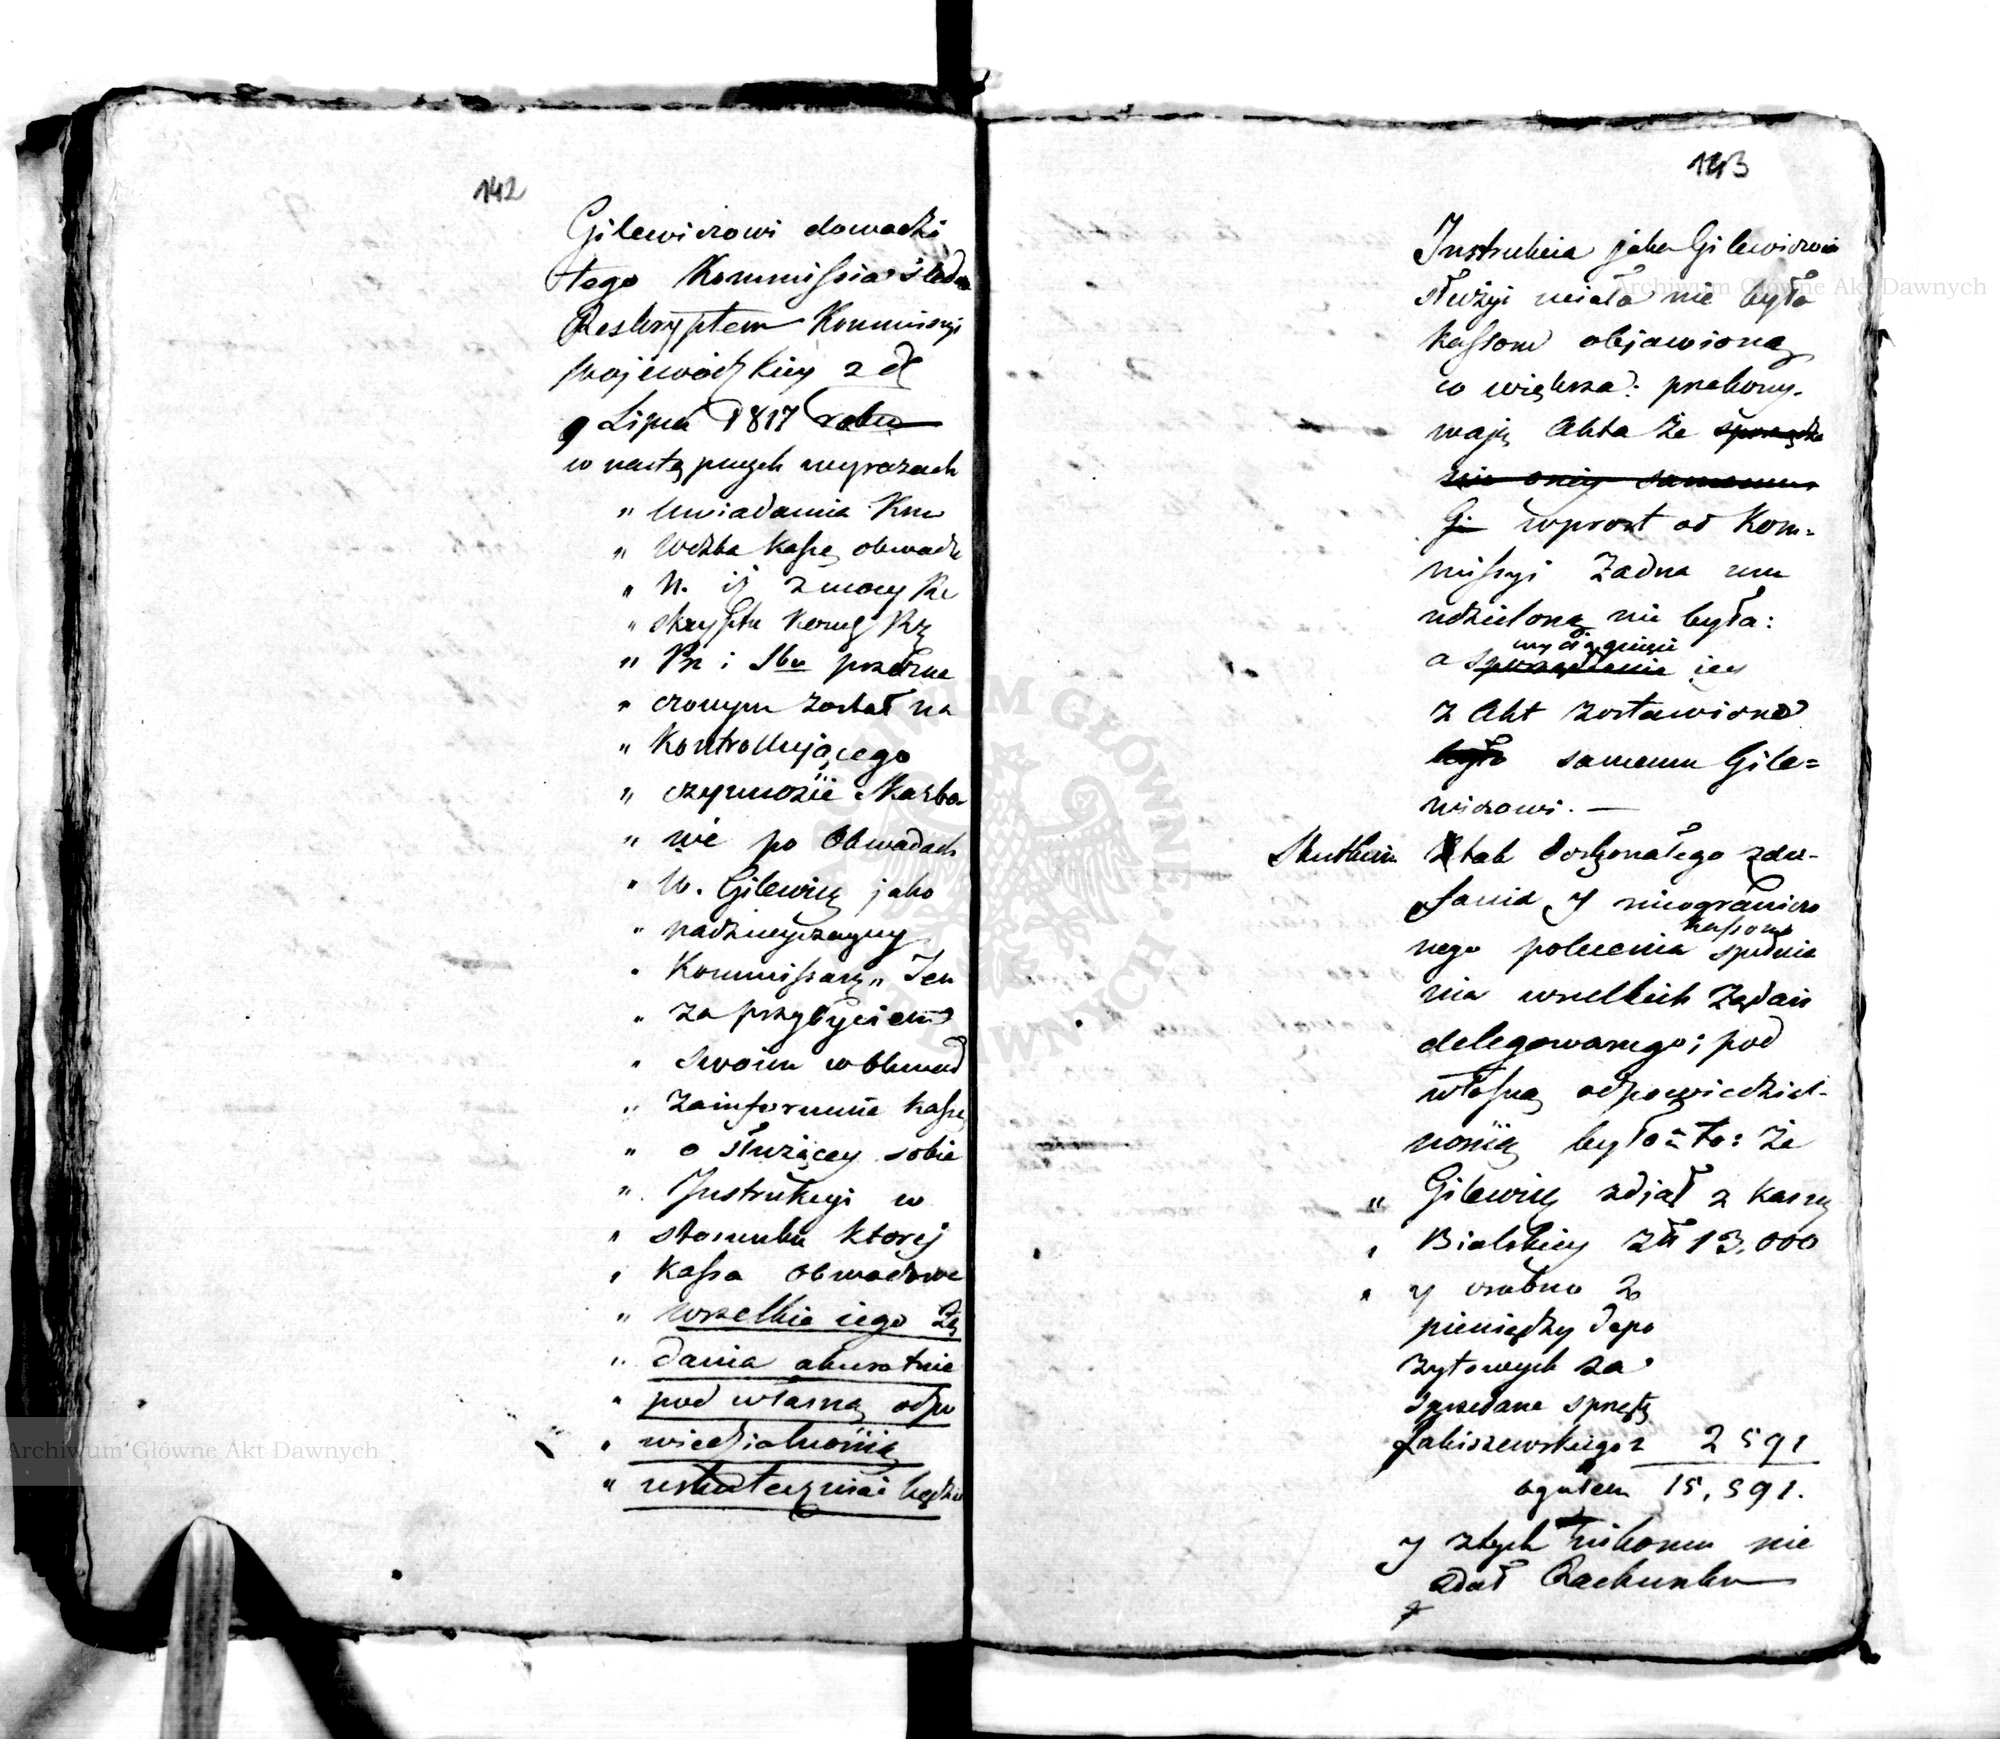 142
Gilewiczowi dowodzi
tego Kommissia śledcza
Reskryptem Kommissyi
Wojewódzkiey z d
9 Lipca 1817 roku
w nastę pnych wyrazach
" Uwiadamia Kom
" Wdzka Kassę obwodo
" W. iż z mocy Re
" skryptu Kom Rz
" Pr i Sbu przezna
" czonym został na
" Kontrollującego
" czynności Skarbo
" we po Obwodach
" W. Gilewicz jako
" nadzwyczayny
" Kommissarz" Ten
" za przybyciem
" swoim w Obwod
" zainformuie Kassę
" o służącey sobie
" Instrukcyi w
" stosunku ktorej
" Kassa obwodowa
" wszelkie iego żą
" dania akuratnie
" pod własną odpo
" wiedzialnością
" uskuteczniać będzie
143
Instrukcia jaka Gilewiczowi
służyć miała nie była
Kassom objawioną
co większa: przekony-
wają Akta że sporządze
nie oney samemu
Gi wprost od Kom=
missyi żadna mu
udzieloną nie była:
wyciągnięcie
a sporządzenie iey
z Akt zostawiono
było samemu Gile=
wiczowi. —
Skutkiem tak doskonałego zau-
fania y nieogranicze
Kassom
nego polecenia spełnia
nia wszelkich żądań
delegowanego; pod
własną odpowiedzial-
nością było to: że
" Gilewicz zdjął z Kassy
" Bialskiey Złł 13,000
" y osobno z
pieniędzy depo
zytowych za
sprzedane sprzęty
Łabiszewskiego z 2591
ogułem 15,591.
y z tych nikomu nie
zdał Rachunku
Archiwum Główne Akt Dawnych
Archiwum Główne Akt Dawnych
ARCHIWUM GŁÓWNE AKT DAWNYCH